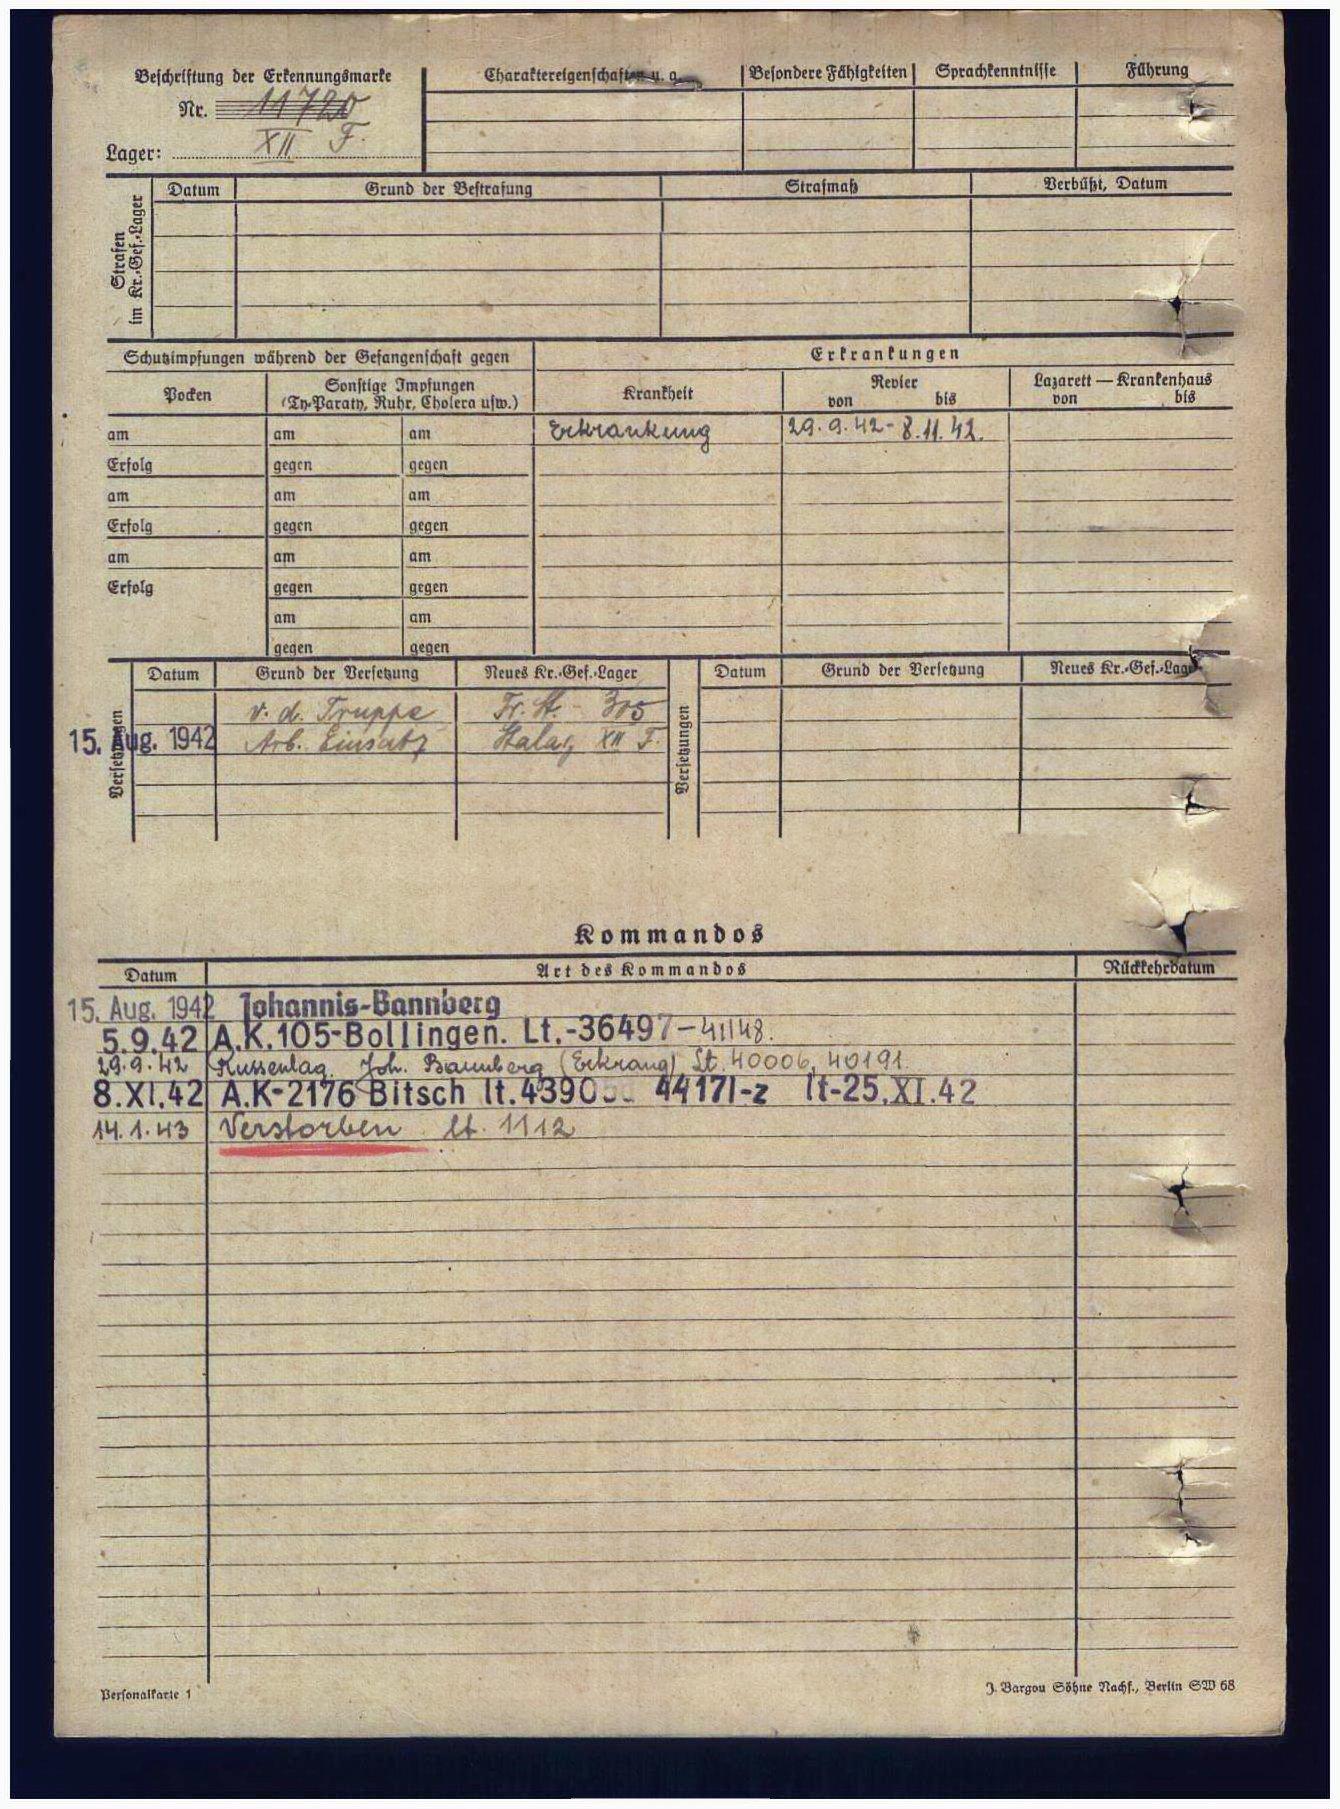 Beschriftung der Erkennungsmarke
Nr. 11720
Lager: XII F.
Charaktereigenschaften u. a.
Besondere Fähigkeiten
Sprachkenntnisse
Führung
Strafen im Kr.-Gef.-Lager
Datum
Grund der Bestrafung
Strafmaß
Verbüßt, Datum
Schutzimpfungen während der Gefangenschaft gegen
Erkrankungen
Pocken
Sonstige Impfungen
(Ty-Paraty, Ruhr, Cholera usw.)
Krankheit
Revier
von bis
Lazarett — Krankenhaus
von bis
am am am Erkrankung 29.9.42 - 8.11.42.
Erfolg gegen gegen
am am am
Erfolg gegen gegen
am am am
Erfolg gegen gegen
am am
gegen gegen
Versetzungen
Datum Grund der Versetzung Neues Kr.-Gef.-Lager
v. d. Truppe Fr. St. - 305
15. Aug. 1942 Arb. Einsatz Stalag XII F.
Versetzungen
Datum Grund der Versetzung Neues Kr.-Gef.-Lage
Kommandos
Datum Art des Kommandos Rückkehrdatum
15. Aug. 1942 Johannis-Bannberg
5.9.42 A.K.105-Bollingen. Lt.-36497-41148.
29.9.42 Russenlag. Joh. Bannberg (Erkrang) Lt. 40006, 40191.
8.XI.42 A.K-2176 Bitsch lt. 44171-z lt-25.XI.42
14.1.43 Verstorben lt. 1112
Personalkarte 1
J. Bargou Söhne Nachf., Berlin SW 68